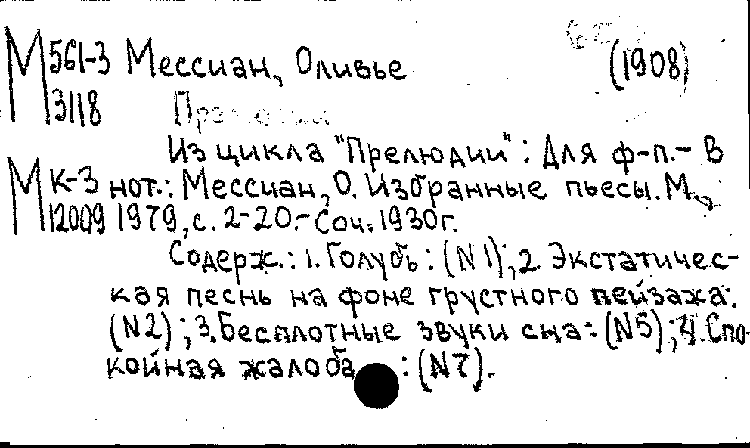 М 561-3 Мессиан, Оливье (1908)
3118
Из цикла "Прелюдии": Для ф-п.- В
М К-3 нот.: Мессиан, О. Избранные пьесы. М.,
12009 1979, с. 2-20.- Соч. 1930г.
Содерж.: 1. Голубь: (N 1); 2. Экстатичес-
кая песнь на фоне грустного пейзажа:
(N2); 3. Бесплотные звуки сна: (N5); 4. Спо-
койная жалоба : (N7).